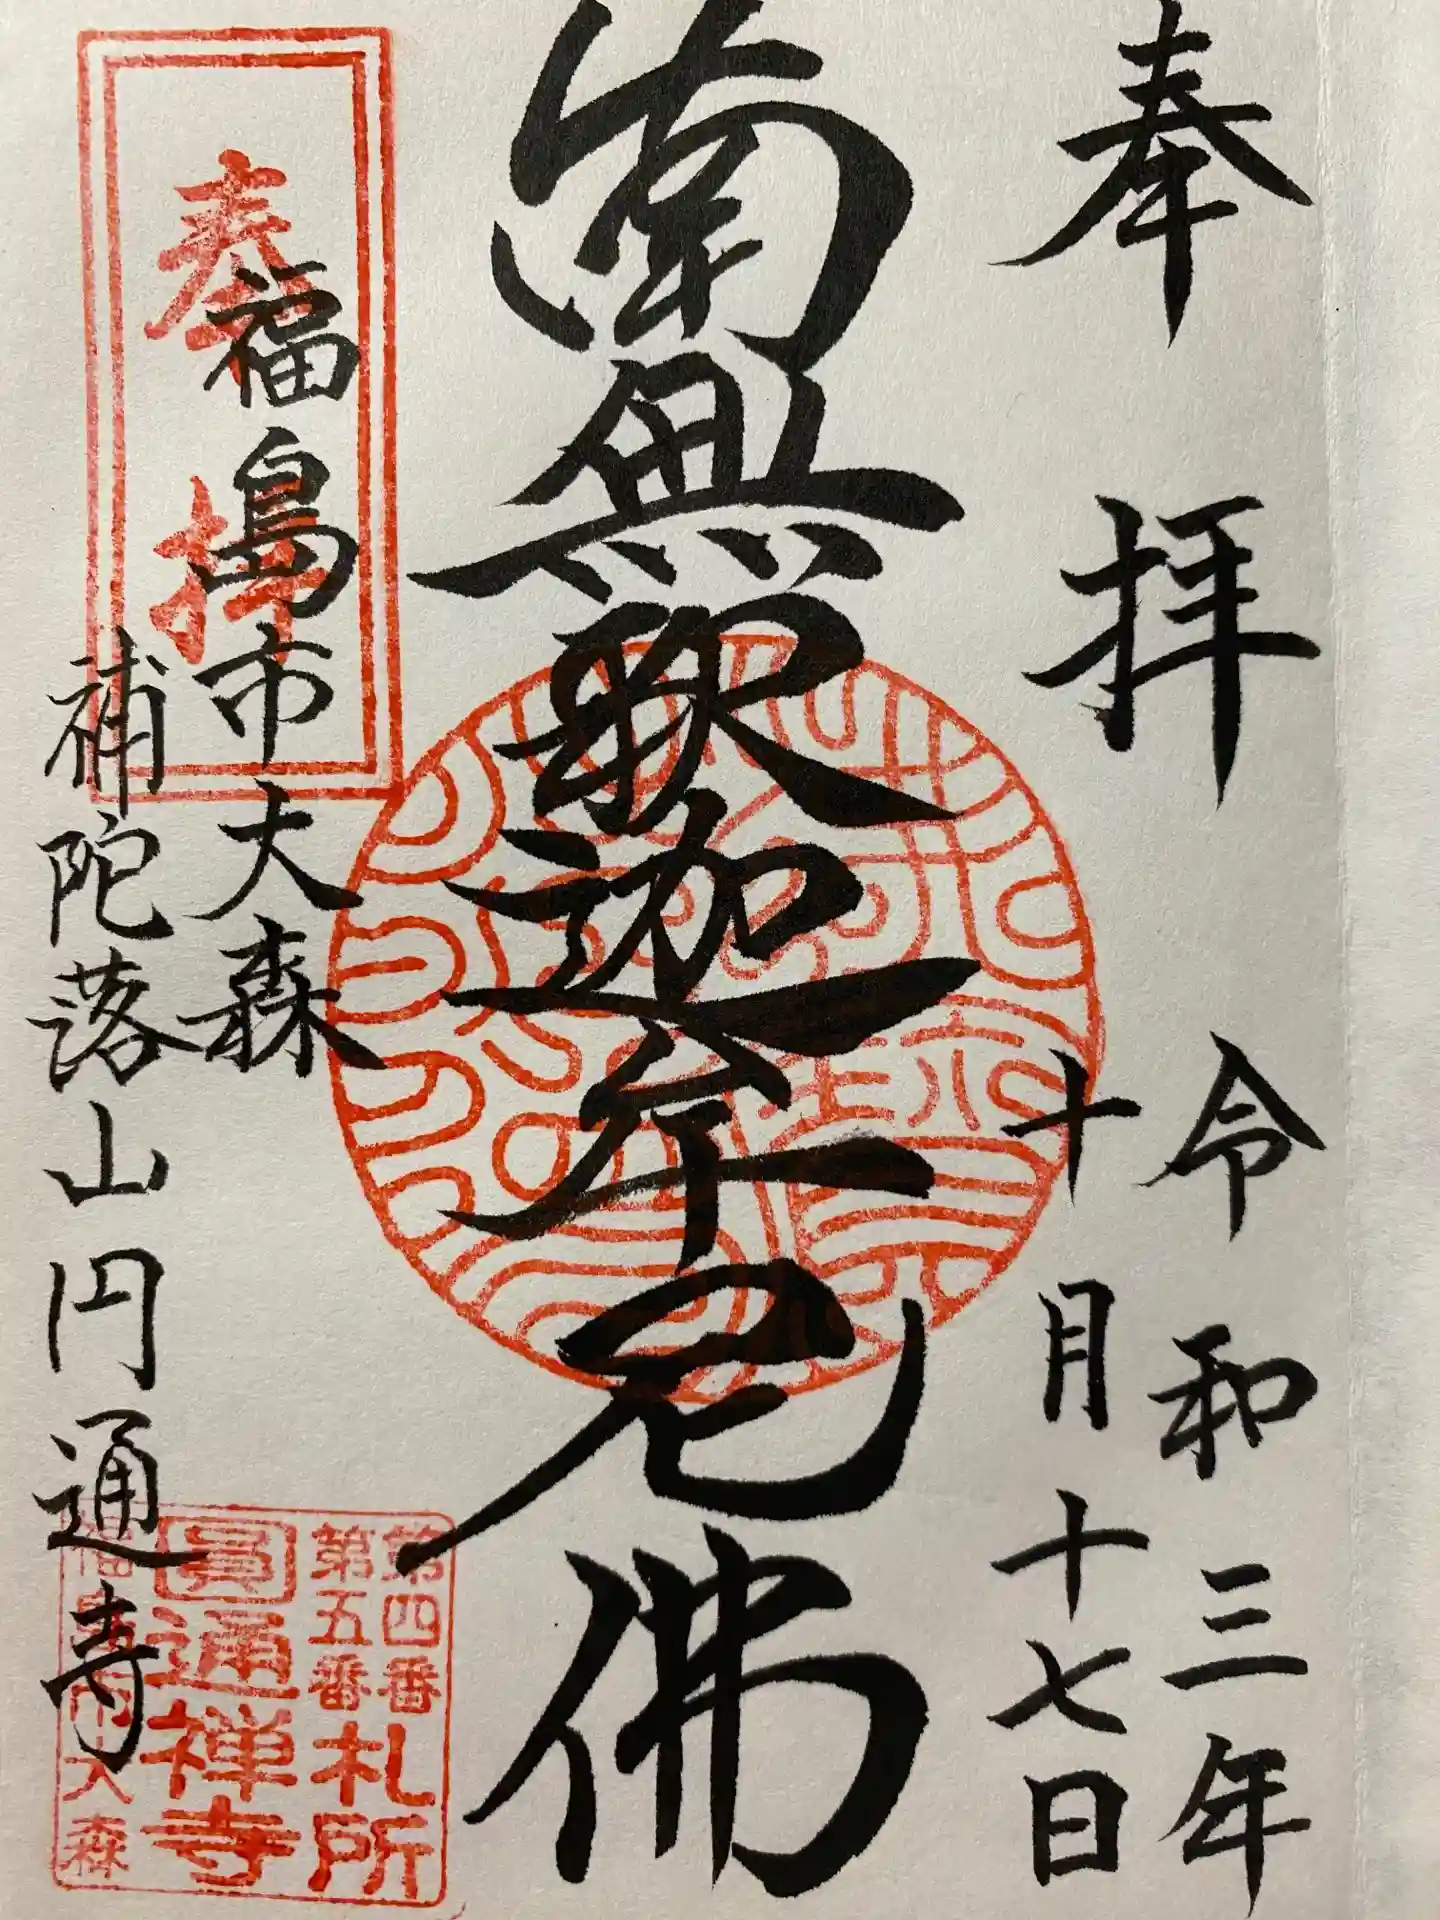 奉拝
令和三年
十月十七日
南無釈迦牟尼佛
奉拝
福島市大森
補陀落山円通寺
第四番
第五番
札所
圓通禅寺
福島市大森